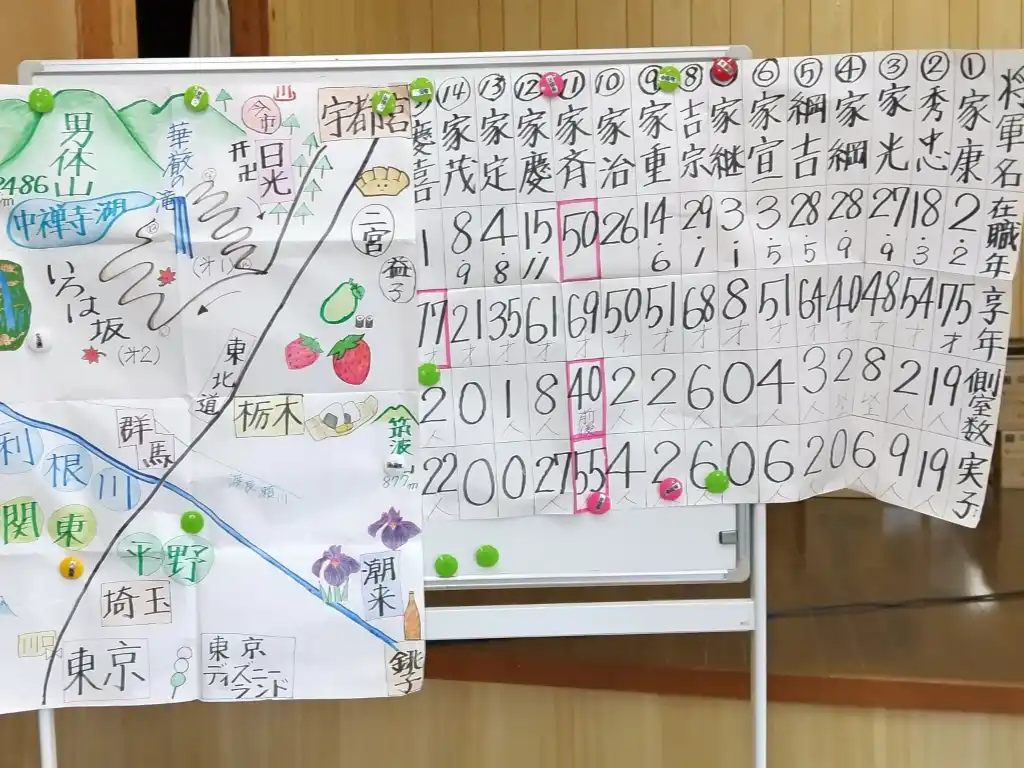 将軍名 在職年 享年 側室数 実子
① 家康 2.2 75才 19人 19人
② 秀忠 18.3 54才 2人 9人
③ 家光 27.9 48才 8人 6人
④ 家綱 28.9 40才 2人 0人
⑤ 綱吉 28.5 64才 3人 2人
⑥ 家宣 3.5 51才 4人 6人
家継 3.1 8才 0人 0人
⑧ 吉宗 29.1 68才 6人 6人
⑨ 家重 14.6 51才 2人 2人
⑩ 家治 26 50才 2人 4人
⑪ 家斉 50 69才 40人前後 55人
⑫ 家慶 15.11 61才 8人 27人
⑬ 家定 4.8 35才 1人 0人
⑭ 家茂 8.9 21才 0人 0人
慶喜 1 77才 2人 22人
男体山
2486m
中禅寺湖
華厳の滝
今市
日光
宇都宮
二宮
益子
いろは坂
(オ1)
(オ2)
東北道
栃木
群馬
筑波
877m
利根川
関東平野
埼玉
潮来
川口
東京
東京ディズニーランド
銚子